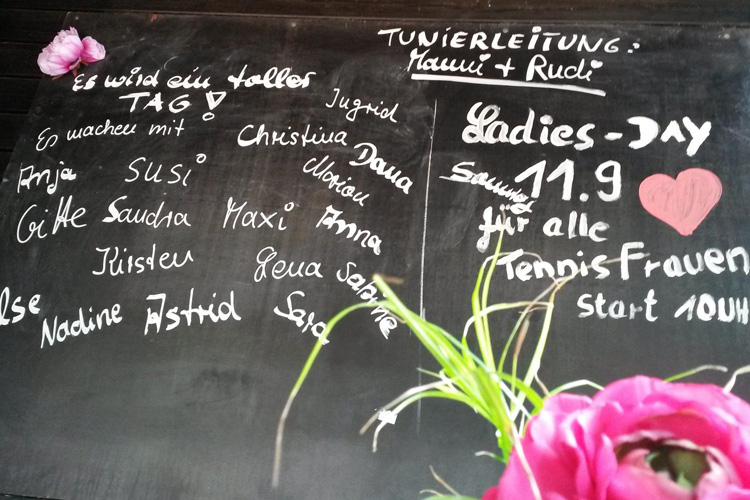 Es wird ein toller
TAG!
Es machen mit
Ingrid
Christina
Anja Susi Marion Dana
Gitte Sandra Maxi Anna
Kirsten Lena Sabine
Ilse Nadine Astrid Sara
TUNIERLEITUNG:
Manni + Rudi
Ladies-DAY
Samstag 11.9
für alle
Tennis Frauen
Start 10UH